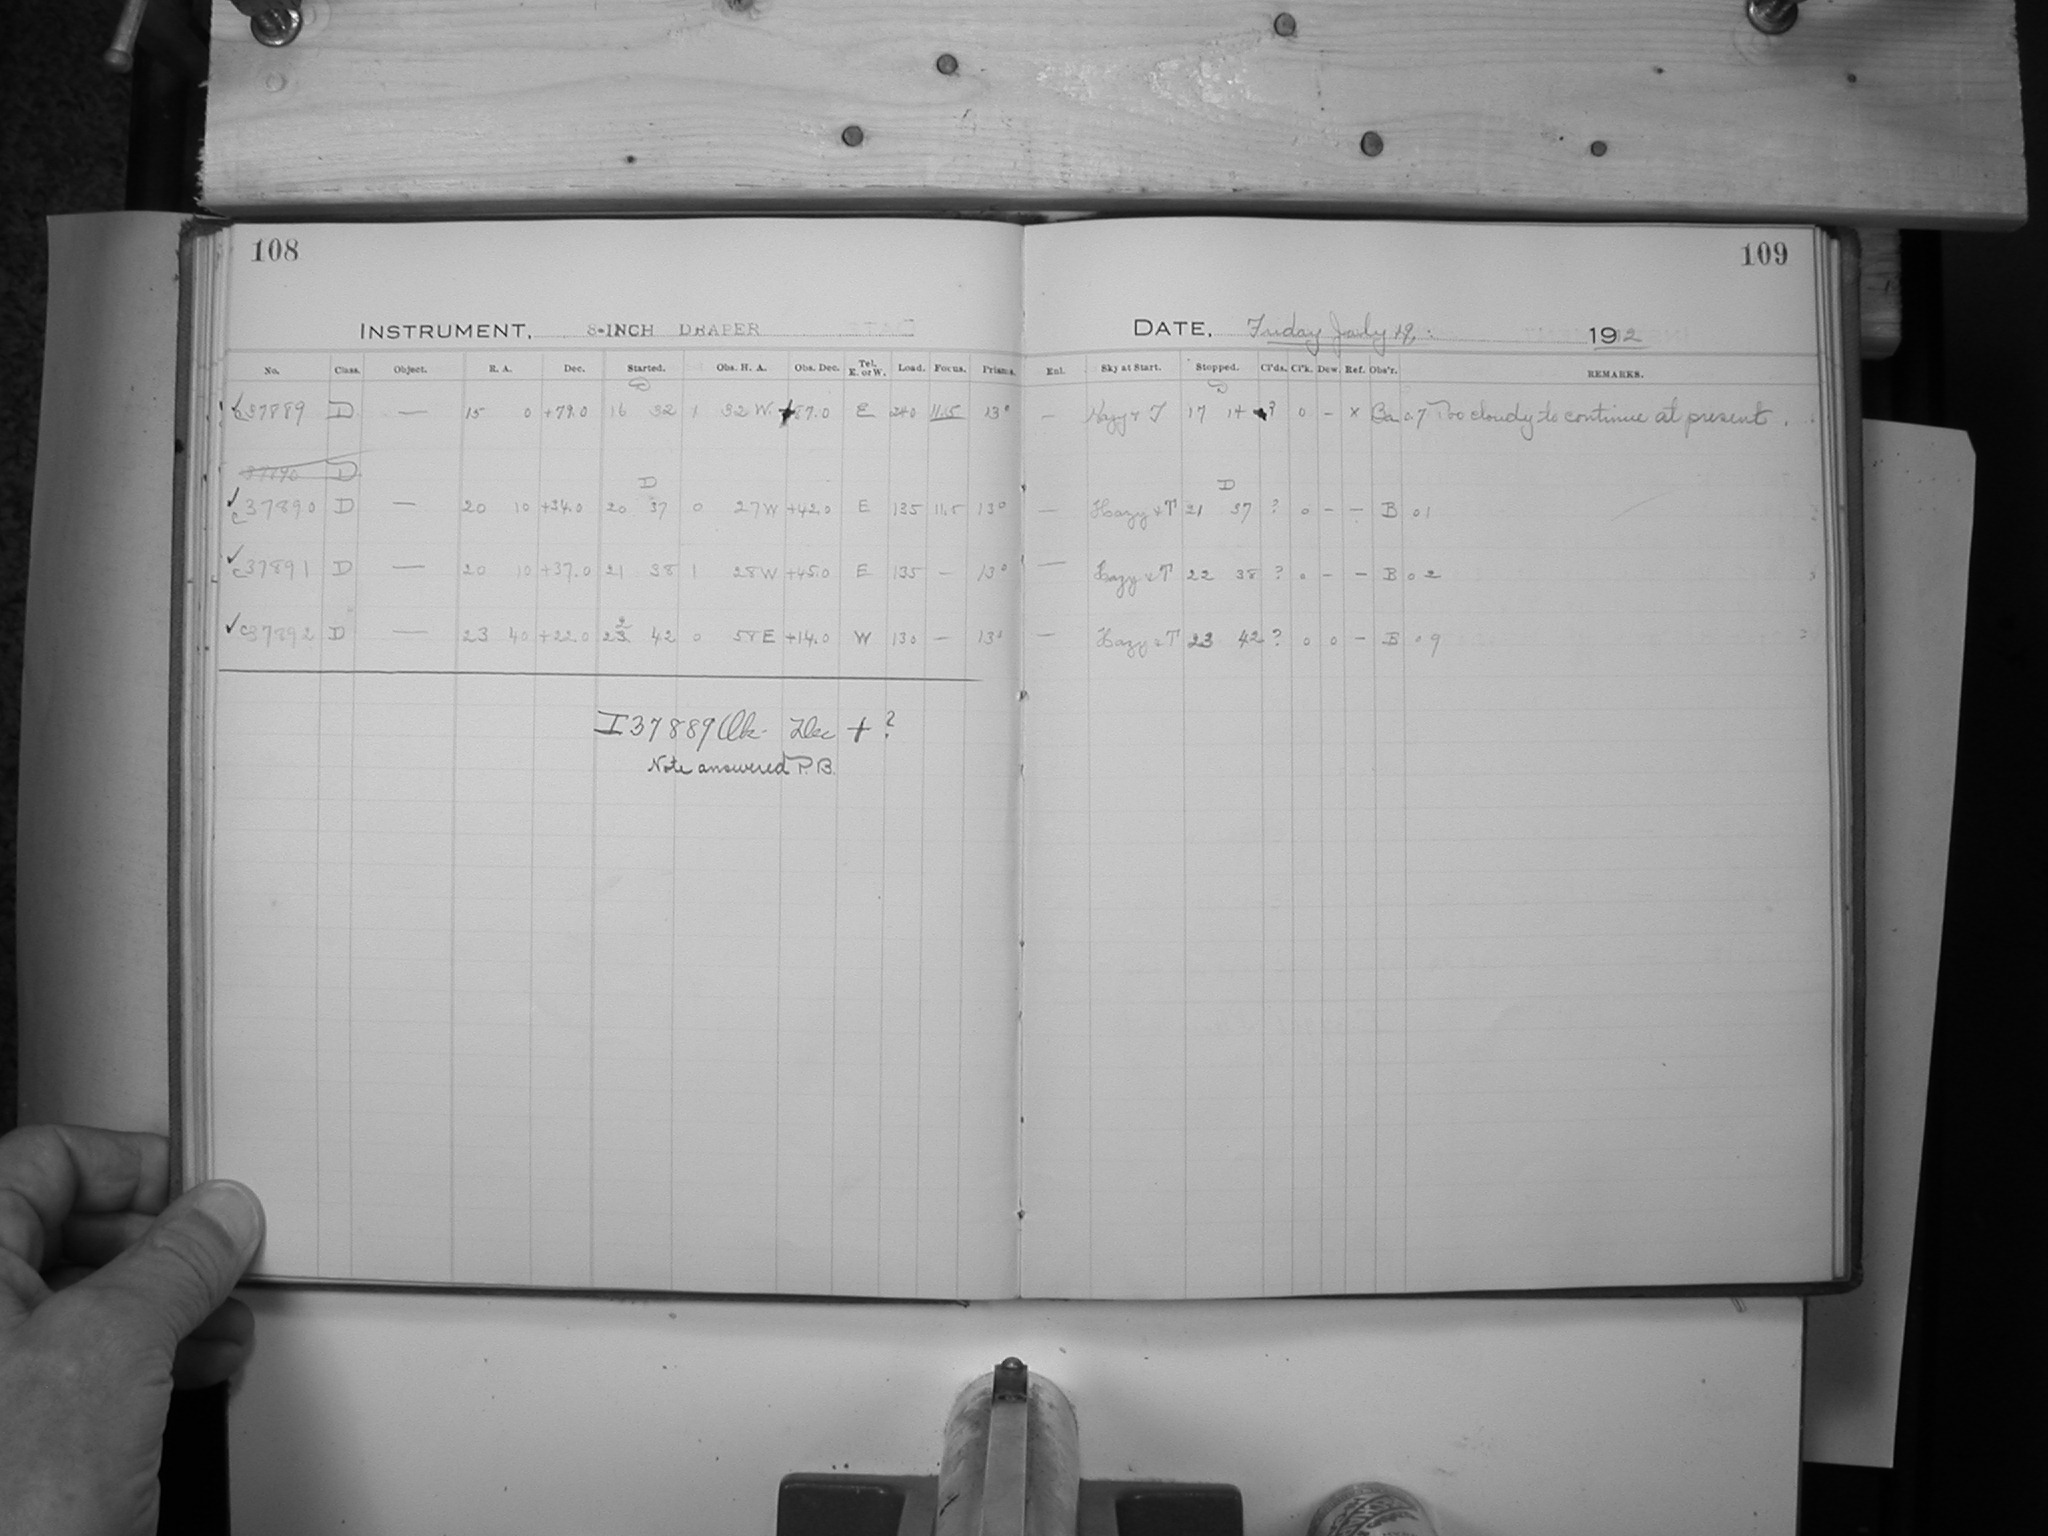 108
109
INSTRUMENT, 8-INCH DRAPER
DATE, Friday July 19, 1912
No. Class. Object. R. A. Dec. Started. Obs. H. A. Obs. Dec. Tel. E. or W. Load. Focus. Prisms. Enl. Sky at Start. Stopped. Cl'ds. Cl'k. Dew. Ref. Obs'r. REMARKS.
D D
c37889 D — 15 0 +79.0 16 32 1 32 W +87.0 E 240 11.5 13° — Hazy & T 17 14 ? 0 – x 0.7 Too cloudy to continue at present.
37890 D
D D
✓ c37890 D — 20 10 +34.0 20 37 0 27W +42.0 E 135 11.5 13° — Hazy & T 21 37 ? 0 – – B 01
✓ c37891 D — 20 10 +37.0 21 38 1 28W +45.0 E 135 – 13° — Hazy & T 22 38 ? 0 – – B 02
2
✓ c37892 D — 23 40 +22.0 23 42 0 58E +14.0 W 130 – 13° — Hazy & T 23 42 ? 0 0 – B 09
I 37889 Ok. Dec + ?
Note answered P.B.